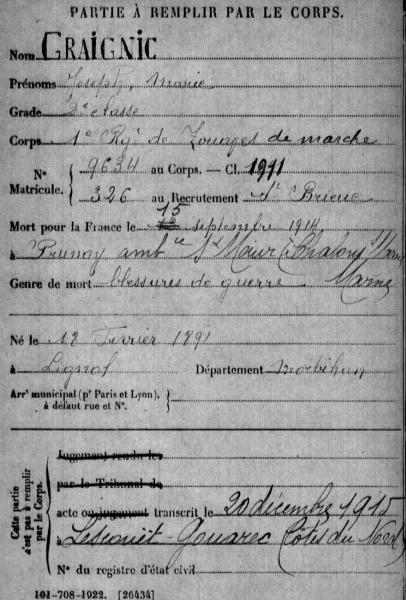 PARTIE À REMPLIR PAR LE CORPS.
Nom GRAIGNIC
Prénoms Joseph, Marie
Grade 2e classe
Corps 1e Rgt de Zouaves de marche
N° Matricule. { 9634 au Corps. — Cl. 1911
326 au Recrutement St Brieuc
15
Mort pour la France le 13 septembre 1914
à Prunay ambce St Maur (Chalons s/ Marne
Genre de mort blessures de guerre Marne
Né le 12 Février 1891
à Lignol Département Morbihan
Arrt municipal (pr Paris et Lyon), à défaut rue et N°. }
Cette partie n'est pas à remplir par le Corps.
Jugement rendu les
par le Tribunal de
acte ou jugement transcrit le 20 décembre 1915
à Lescouët-Gouarec (Côtes du Nord)
N° du registre d'état civil
101-708-1922. [26434]